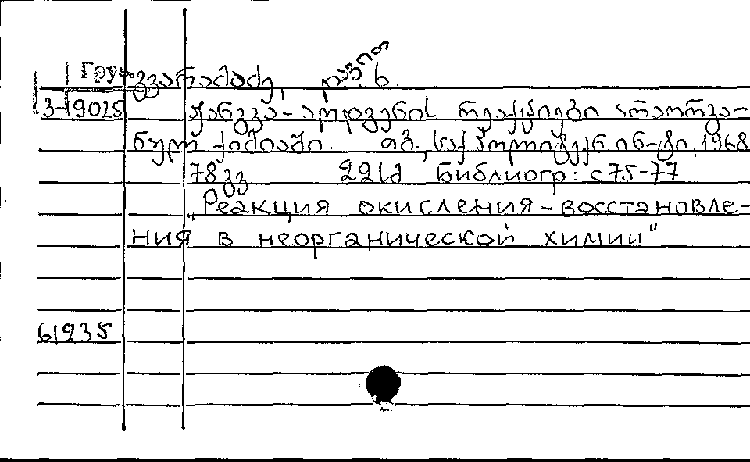 Груз
დავით ხ.
3-19025 ჟანგვა-აღდგენის რეაქციები არაორგა-
ნულ ქიმიაში. თბ., საქ. პოლიტექნ. ინ-ტი, 1968
78 გვ. 22 სმ Библиогр: с 75-77
„Реакция окисления-восстановле-
ния в неорганической химии"
61235